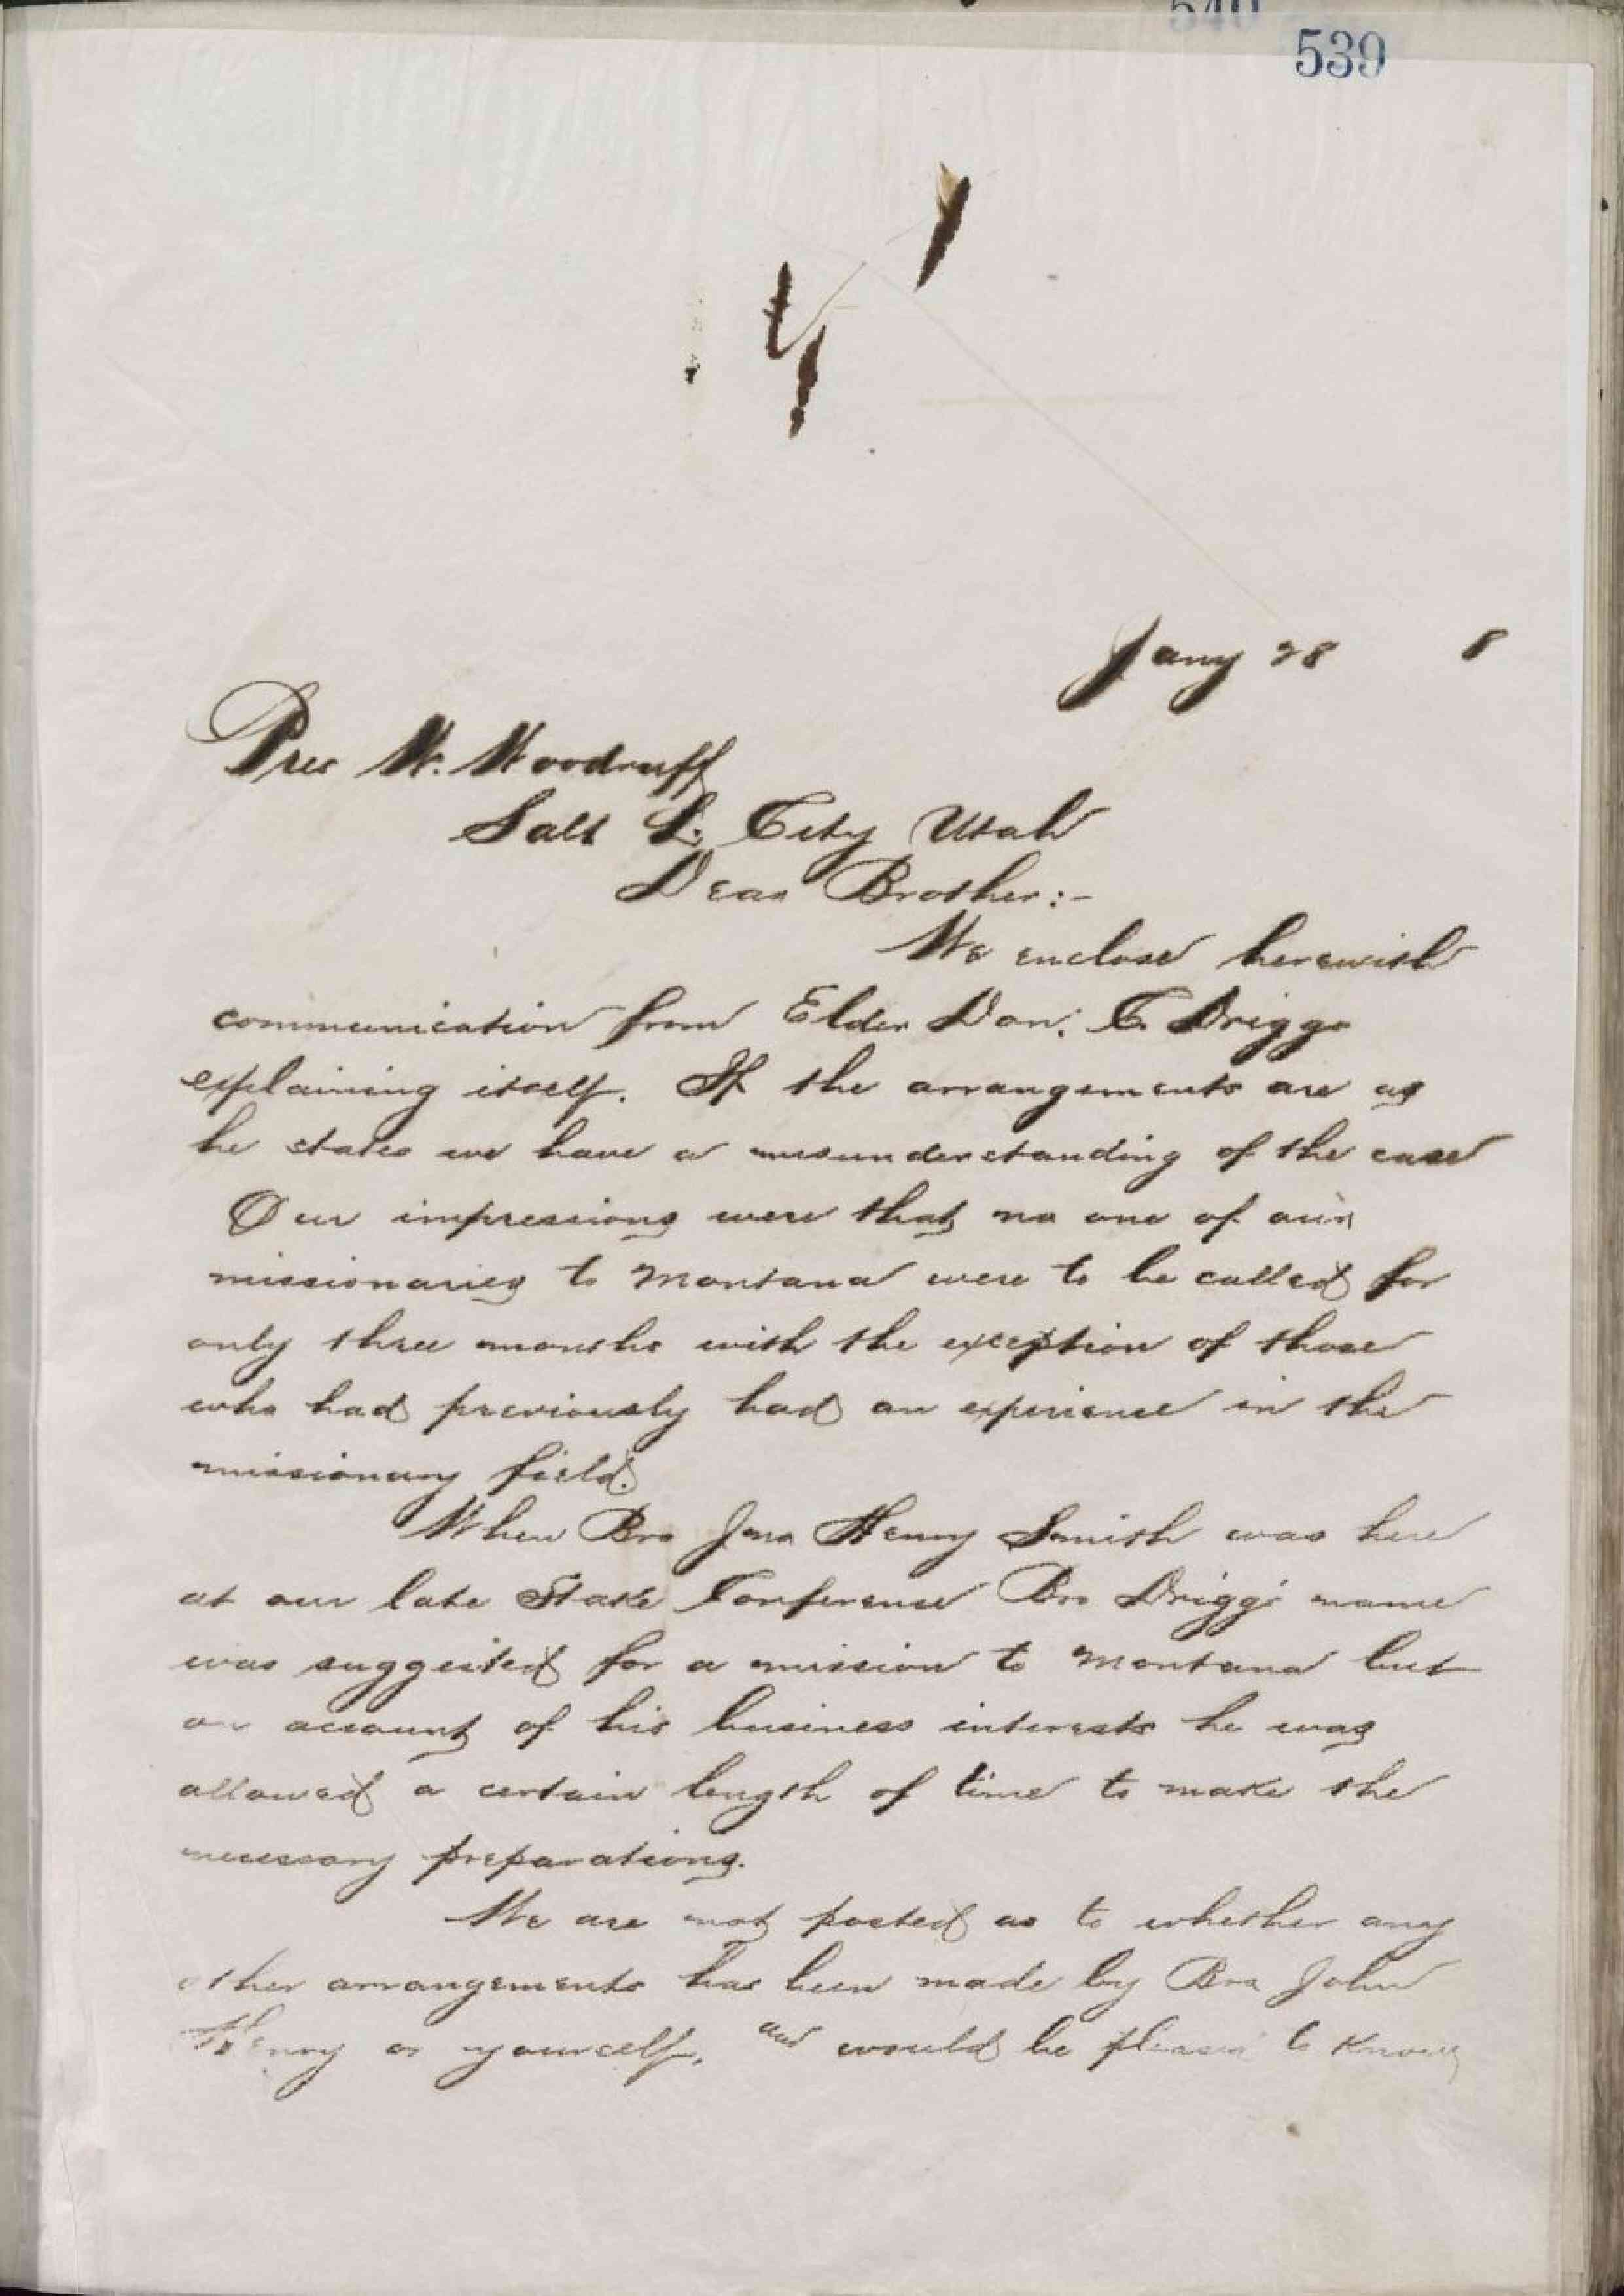 539
Jany 28 8
Pres W. Woodruff
Salt L. City Utah
Dear Brother:-
We enclose herewith
communication from Elder Don. C. Driggs
explaining itself. If the arrangements are as
he states we have a misunderstanding of the case
Our impressions were that no one of our
missionaries to Montana were to be called for
only three months with the exception of those
who had previously had an experience in the
missionary field.
When Bro Jno Henry Smith was here
at our late Stake Conference Bro Driggs name
was suggested for a mission to Montana but
on account of his business interests he was
allowed a certain length of time to make the
necessary preparations.
We are not posted as to whether any
other arrangements has been made by Bro John
Henry or yourself, and would be pleased to know